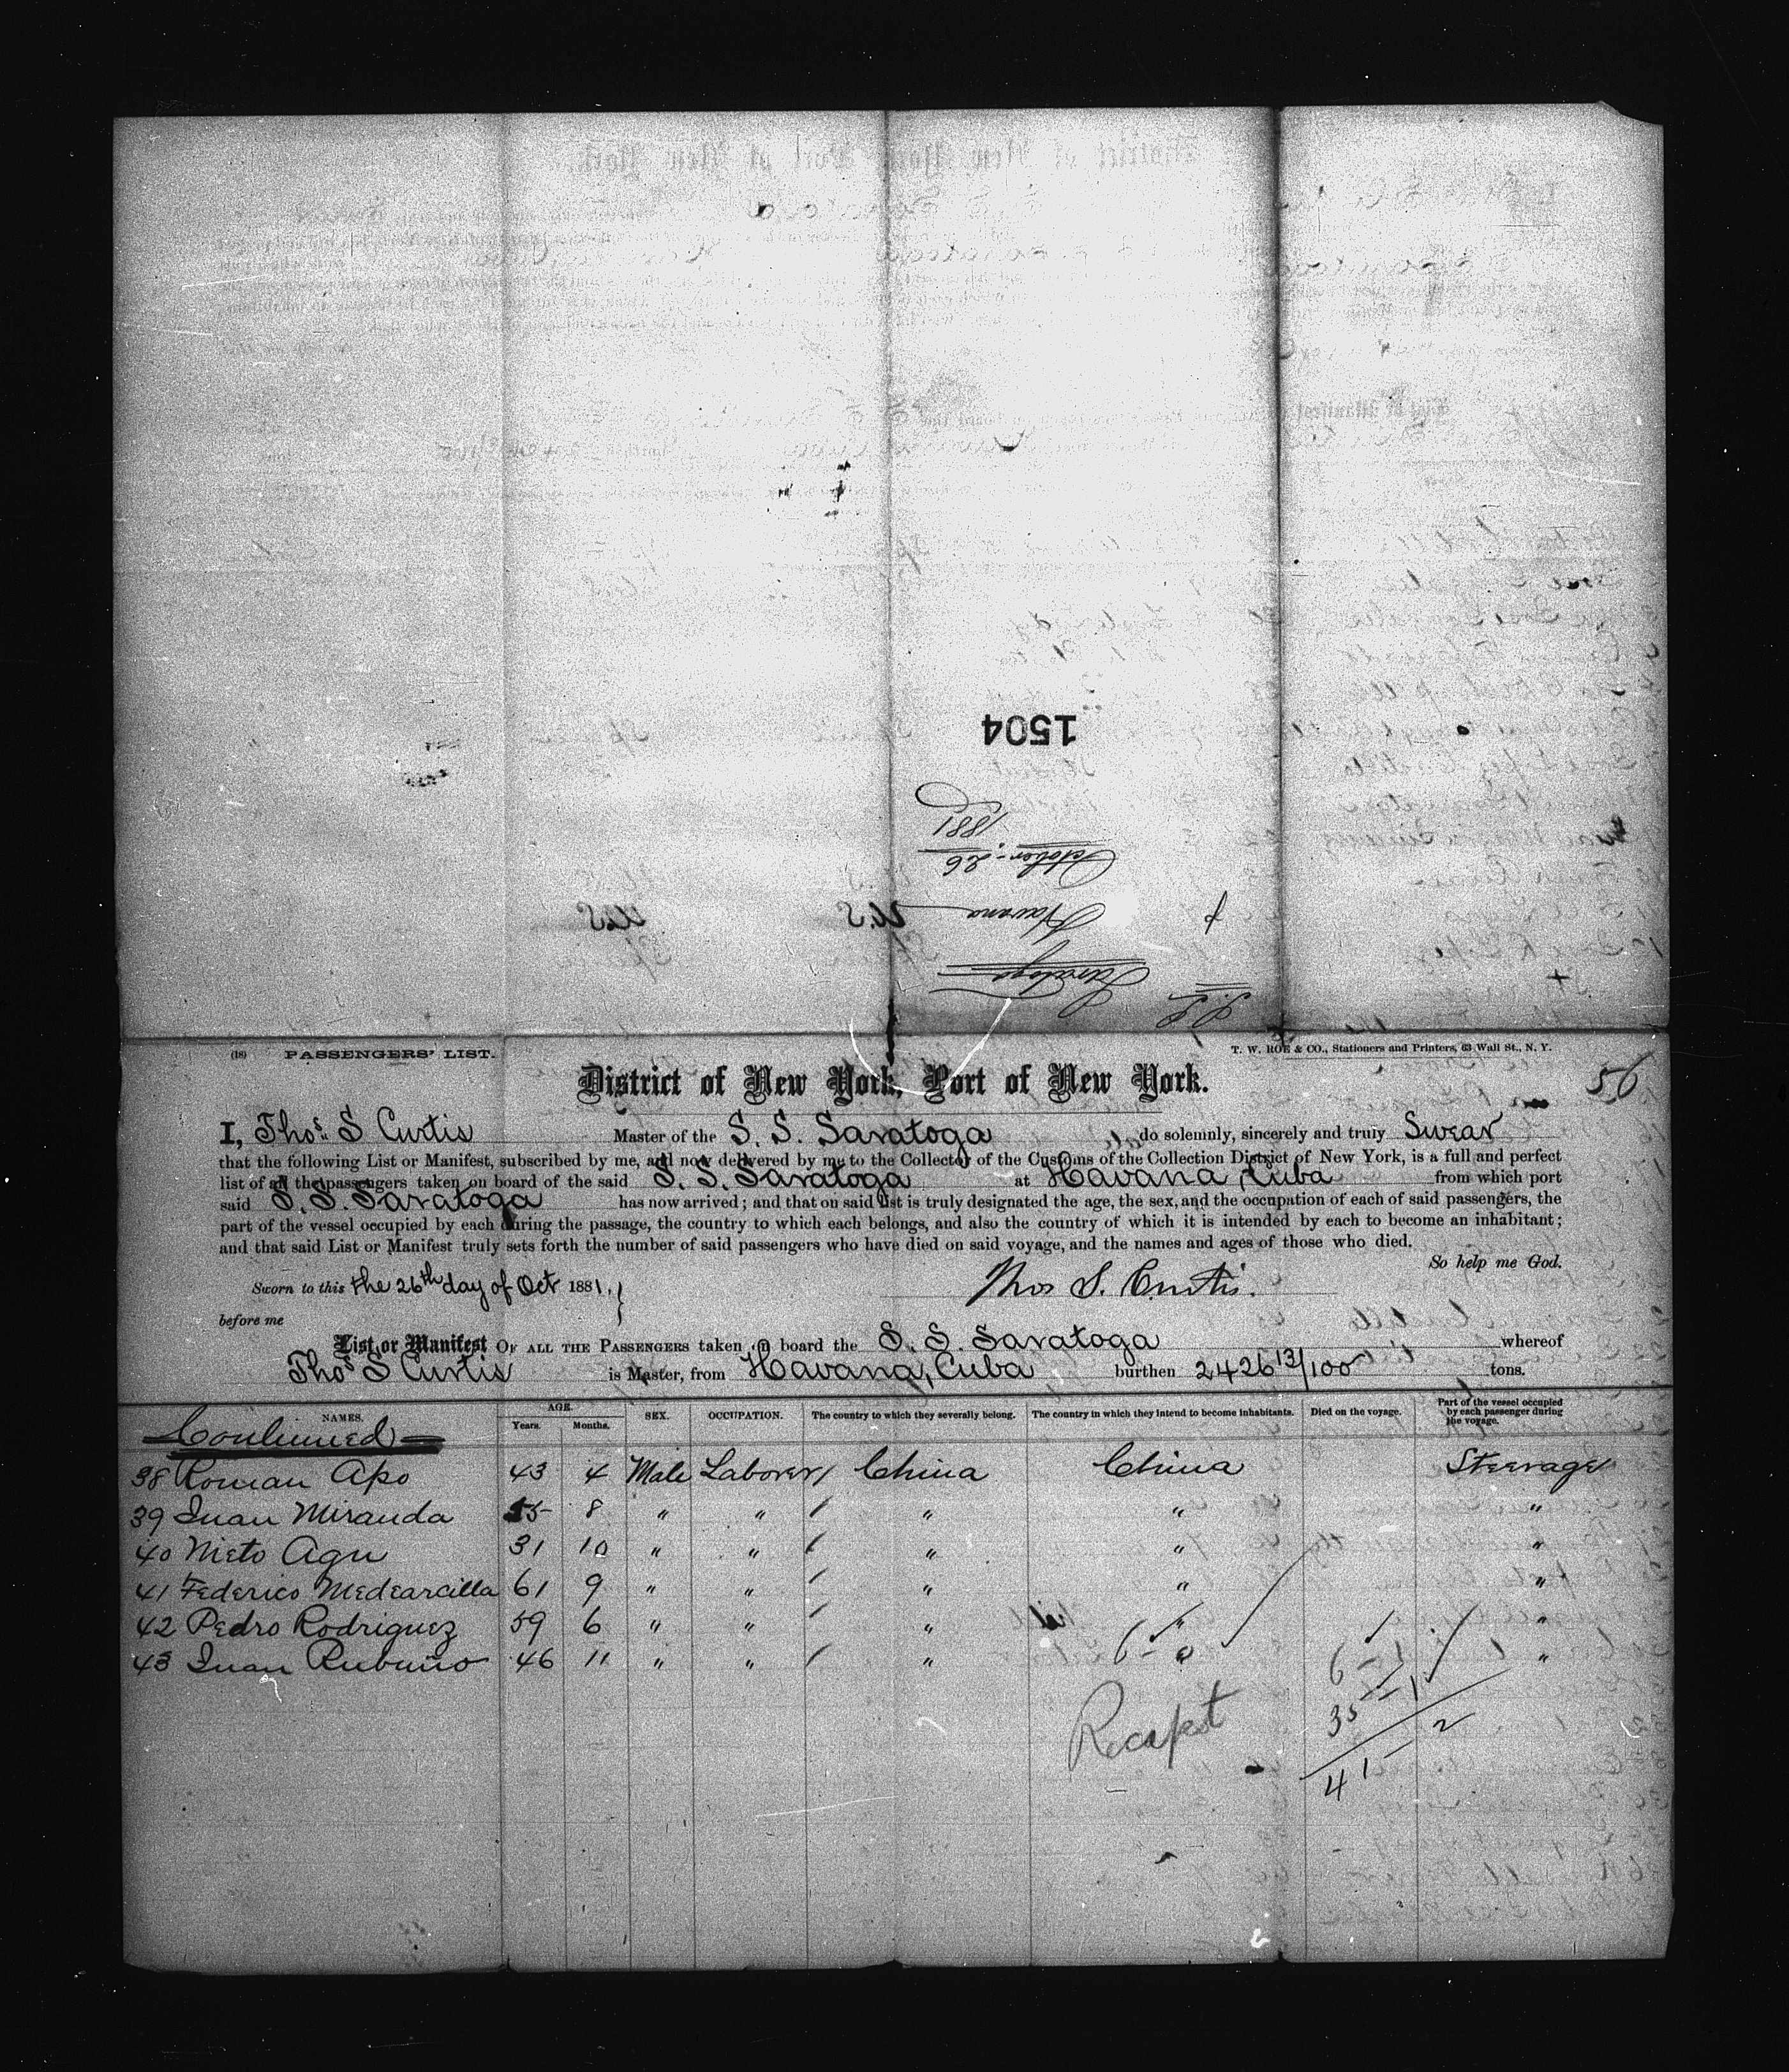 1504
1881
October 26
Havana
Saratoga
S.S.
(18) PASSENGERS' LIST.
T. W. ROE & CO., Stationers and Printers, 63 Wall St., N. Y.
District of New York, Port of New York.
56
I, Thos. S Curtis Master of the S. S. Saratoga do solemnly, sincerely and truly Swear
that the following List or Manifest, subscribed by me, and now delivered by me to the Collector of the Customs of the Collection District of New York, is a full and perfect
list of all the passengers taken on board of the said S. S. Saratoga at Havana, Cuba from which port
said S. S. Saratoga has now arrived; and that on said list is truly designated the age, the sex, and the occupation of each of said passengers, the
part of the vessel occupied by each during the passage, the country to which each belongs, and also the country of which it is intended by each to become an inhabitant;
and that said List or Manifest truly sets forth the number of said passengers who have died on said voyage, and the names and ages of those who died.
So help me God.
Sworn to this the 26th day of Oct 1881. }
Thos S. Curtis.
before me
List or Manifest OF ALL THE PASSENGERS taken on board the S. S. Saratoga whereof
Thos S Curtis is Master, from Havana, Cuba burthen 2426 13/100 tons.
NAMES. AGE. Years. Months. SEX. OCCUPATION. The country to which they severally belong. The country in which they intend to become inhabitants. Died on the voyage. Part of the vessel occupied by each passenger during the voyage.
Continued
38 Roman Apo 43 4 Male Laborer China China Steerage
39 Juan Miranda 55 8 " " " " "
40 Nieto Agu 31 10 " " " " "
41 Federico Medearcilla 61 9 " " " " "
42 Pedro Rodriguez 59 6 " " " " "
43 Juan Rubuño 46 11 " " " "
6-0
6-1
35-1
41-2